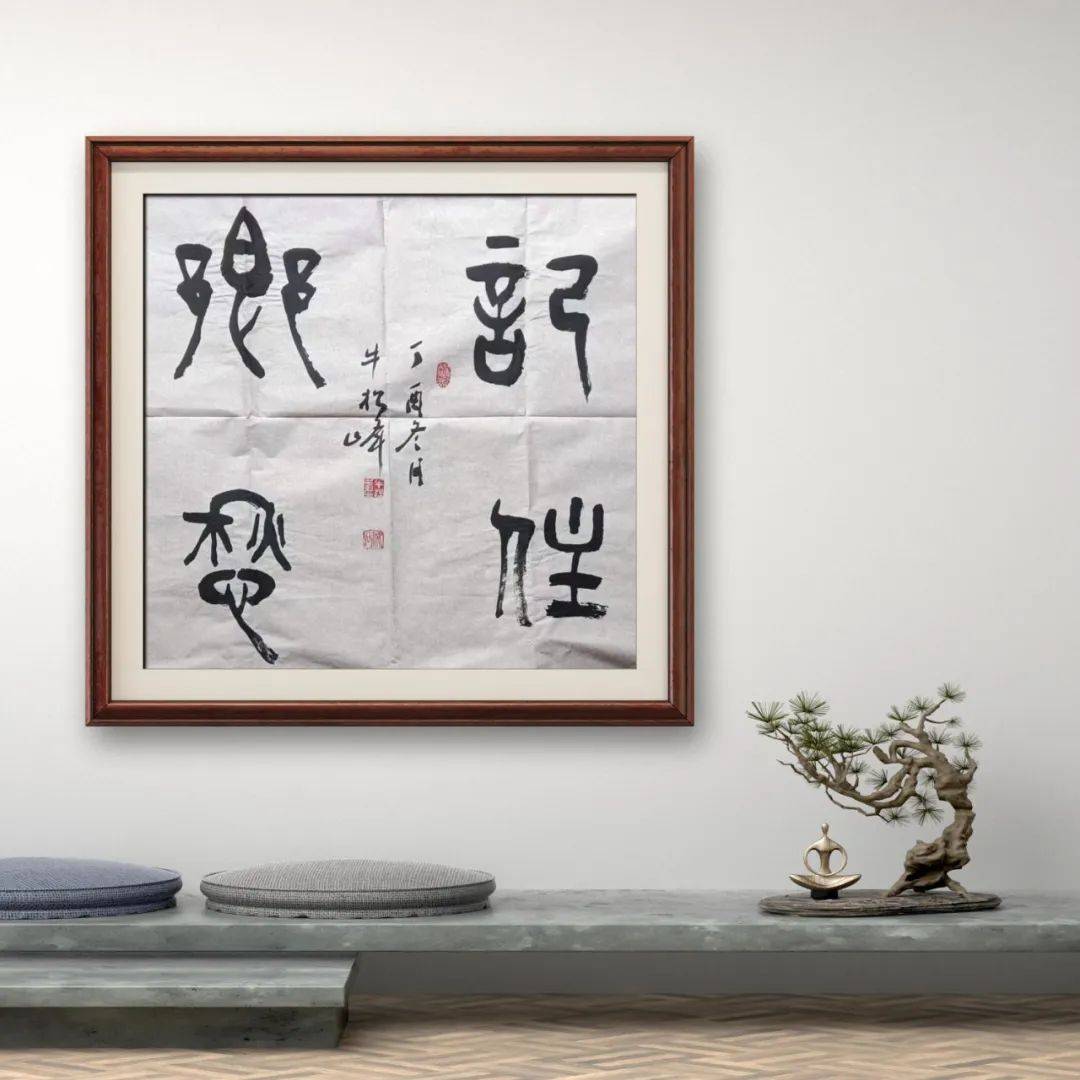 記住
鄉愁
丁酉冬月
牛松峰